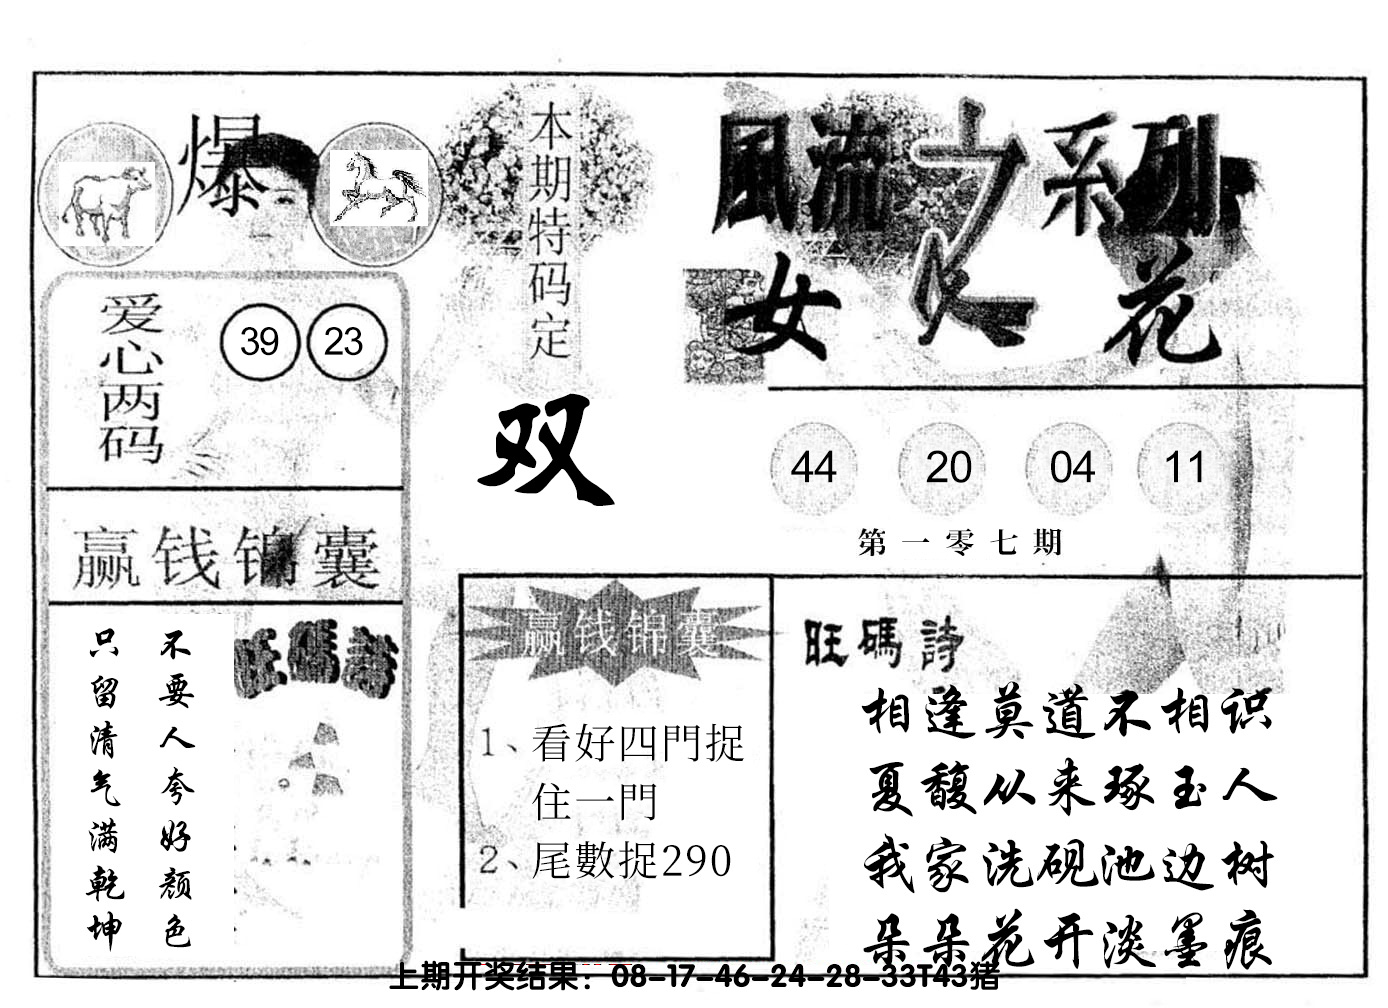 爆
本期特码定
双
風流之系列
女人花
爱心两码
39 23
44 20 04 11
第一零七期
赢钱锦囊
不要人夸好颜色
只留清气满乾坤
旺碼詩
赢钱锦囊
1、看好四門捉
住一門
2、尾數捉290
旺碼詩
相逢莫道不相识
夏馥从来琢玉人
我家洗砚池边树
朵朵花开淡墨痕
上期开奖结果：08-17-46-24-28-33T43猪